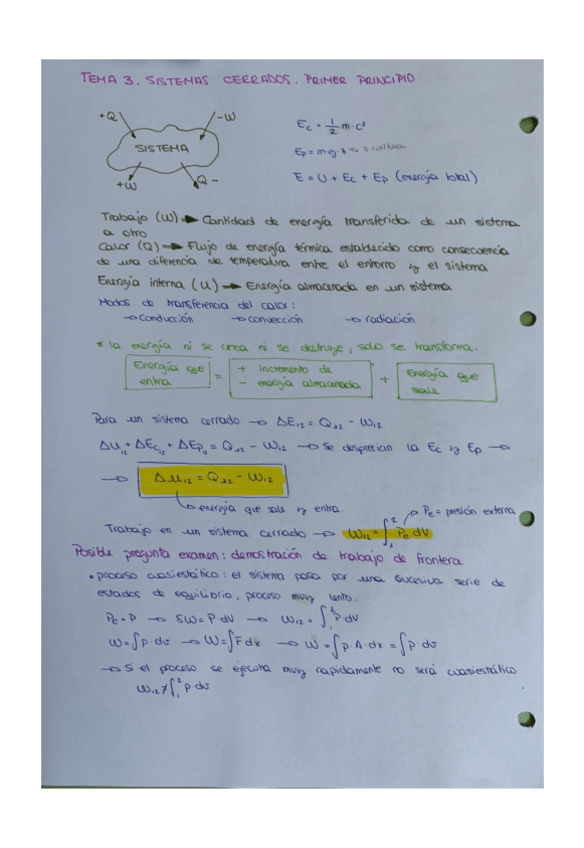 TEMA 3. SISTEMAS CERRADOS. PRIMER PRINCIPIO
+Q
-W
SISTEMA
+W
Q-
Ec = 1/2 m·c²
Ep = m·g·z → z = altura
E = U + Ec + Ep (energía total)
Trabajo (W) → Cantidad de energía transferida de un sistema
a otro
Calor (Q) → Flujo de energía térmica establecido como consecuencia
de una diferencia de temperatura entre el entorno y el sistema
Energía interna (U) → Energía almacenada en un sistema
Modos de transferencia del calor:
→ conducción → convección → radiación
* la energía ni se crea ni se destruye, solo se transforma.
Energía que entra = + incremento de - energía almacenada + Energía que sale
Para un sistema cerrado → ΔE₁₂ = Q₁₂ - W₁₂
ΔU₁₂ + ΔEc₁₂ + ΔEp₁₂ = Q₁₂ - W₁₂ → Se desprecian la Ec y Ep →
→ ΔU₁₂ = Q₁₂ - W₁₂
→ energía que sale y entra.
→ Pe = presión externa
Trabajo en un sistema cerrado → W₁₂ = ∫₁² Pe dV
Posible pregunta examen: demostración de trabajo de frontera
• proceso cuasiestático: el sistema pasa por una sucesiva serie de
estados de equilibrio, proceso muy lento.
Pe = P → δW = P·dV → W₁₂ = ∫₁² P dV
W = ∫P·dv → W = ∫F dx → W = ∫P·A·dx = ∫P·dv
→ Si el proceso se ejecuta muy rapidamente no será cuasiestático
W₁₂ ≠ ∫₁² P·dv